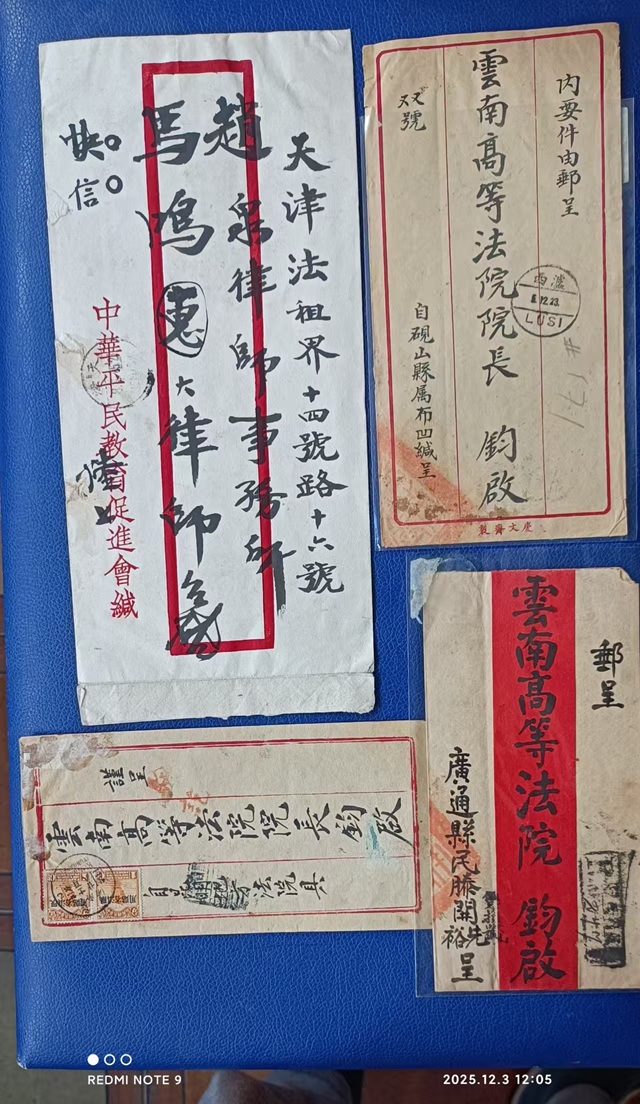 天津法租界十四號路十六號
趙泉律師事務所
馬鴻惠大律師台啟
快信
中華平民教育促進會緘
内要件由郵呈
雲南高等法院院長 鈞啟
双號
自硯山縣属布凹緘呈
瀘西
12.23
LUSI
慶文齋製
郵呈
雲南高等法院 鈞啟
廣通縣民滕開先裕呈
謹呈
雲南高等法院院長鈞啟
法院具
REDMI NOTE 9
2025.12.3 12:05